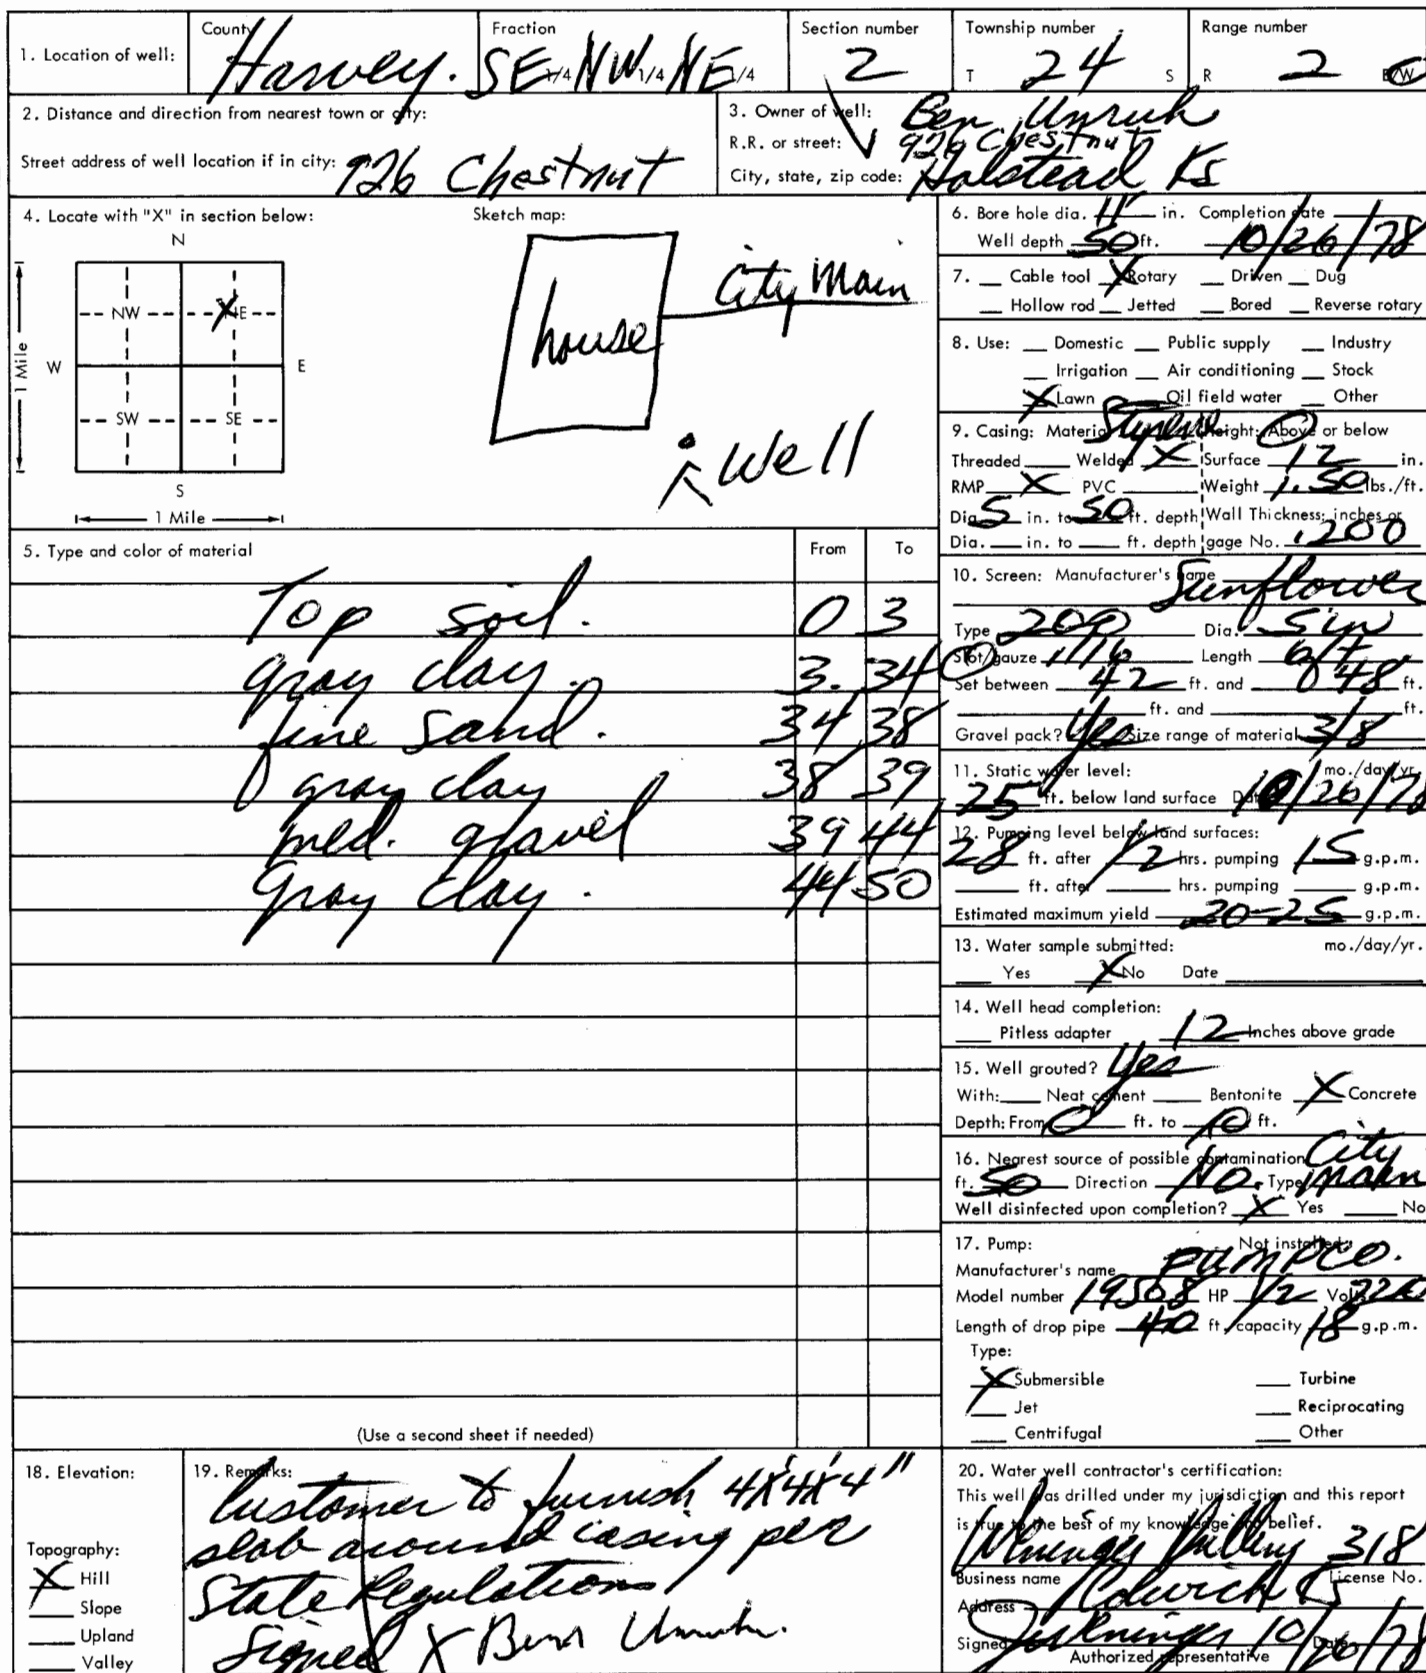 County Fraction Section number Township number Range number
1. Location of well: Harvey. SE 1/4 NW 1/4 NE 1/4 2 T 24 S R 2 E/W
2. Distance and direction from nearest town or city:
Street address of well location if in city: 926 Chestnut
3. Owner of well: Ben Unruh
R.R. or street: 926 Chestnut
City, state, zip code: Halstead Ks
4. Locate with "X" in section below:
N
NW X NE
W E
SW SE
S
1 Mile
1 Mile
Sketch map:
house
City Main
Well
5. Type and color of material From To
Top soil. 0 3
gray clay. 3. 34
fine sand. 34 38
gray clay 38 39
med. gravel 39 44
Gray clay. 44 50
(Use a second sheet if needed)
6. Bore hole dia. 11 in. Completion date
Well depth 50 ft. 10/26/78
7. Cable tool X Rotary Driven Dug
Hollow rod Jetted Bored Reverse rotary
8. Use: Domestic Public supply Industry
Irrigation Air conditioning Stock
X Lawn Oil field water Other
9. Casing: Material Styrene Height: Above or below
Threaded Welded X Surface 12 in.
RMP X PVC Weight 1.50 lbs./ft.
Dia. 5 in. to 50 ft. depth Wall Thickness: inches or
Dia. in. to ft. depth gage No. .200
10. Screen: Manufacturer's name
Sunflower
Type 200 Dia. 5 in
Slot/gauze 1/16 Length 6 ft
Set between 42 ft. and 48 ft.
ft. and ft.
Gravel pack? Yes Size range of material 3/8
11. Static water level: mo./day/yr.
25 ft. below land surface Date 10/26/78
12. Pumping level below land surfaces:
28 ft. after 1/2 hrs. pumping 15 g.p.m.
ft. after hrs. pumping g.p.m.
Estimated maximum yield 20-25 g.p.m.
13. Water sample submitted: mo./day/yr.
Yes X No Date
14. Well head completion:
Pitless adapter 12 Inches above grade
15. Well grouted? Yes
With: Neat cement Bentonite X Concrete
Depth: From 0 ft. to 10 ft.
16. Nearest source of possible contamination: City
ft. 50 Direction No. Type Main
Well disinfected upon completion? X Yes No
17. Pump: Not installed
Manufacturer's name PUMPCO.
Model number 19508 HP 1/2 Volts 220
Length of drop pipe 40 ft. capacity 18 g.p.m.
Type:
X Submersible Turbine
Jet Reciprocating
Centrifugal Other
18. Elevation:
Topography:
X Hill
Slope
Upland
Valley
19. Remarks:
Customer to furnish 4'X4'X4"
slab around casing per
State Regulations
Signed X Ben Unruh.
20. Water well contractor's certification:
This well was drilled under my jurisdiction and this report
is true to the best of my knowledge and belief.
Drilling 318
Business name License No.
Address Colwich Ks
Signed Date
Authorized representative